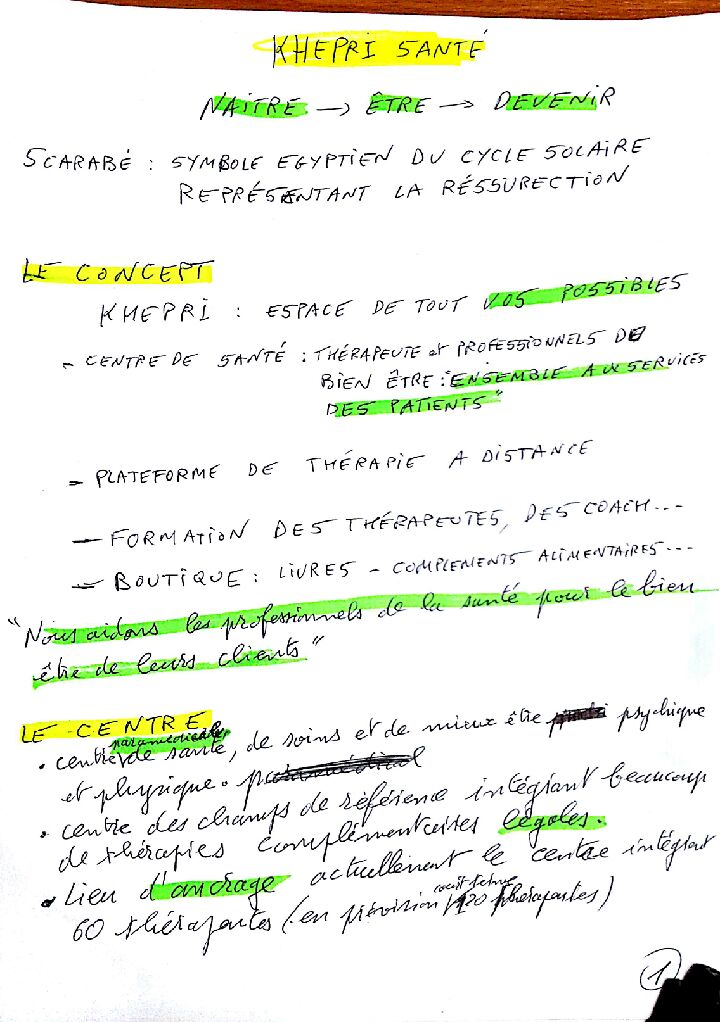 KHEPRI SANTÉ
NAITRE → ÊTRE → DEVENIR
SCARABÉ : SYMBOLE EGYPTIEN DU CYCLE SOLAIRE
REPRÉSENTANT LA RÉSSURECTION
LE CONCEPT
KHEPRI : ESPACE DE TOUT VOS POSSIBLES
- CENTRE DE SANTÉ : THÉRAPEUTE et PROFESSIONNELS DE
BIEN ÊTRE : "ENSEMBLE AUX SERVICES
DES PATIENTS"
- PLATEFORME DE THÉRAPIE A DISTANCE
- FORMATION DES THÉRAPEUTES, DES COACH...
- BOUTIQUE : LIVRES - COMPLEMENTS ALIMENTAIRES...
"Nous aidons les professionnels de la santé pour le bien
être de leurs clients"
LE CENTRE
paramédicale
• centre de santé, de soins et de mieux être psychique
et physique.
• centre des champs de référence intégrant beaucoup
de thérapies complémentaires légales.
• Lieu d'ancrage actuellement le centre intégrant
60 thérapeutes (en prévision 120 thérapeutes)
1